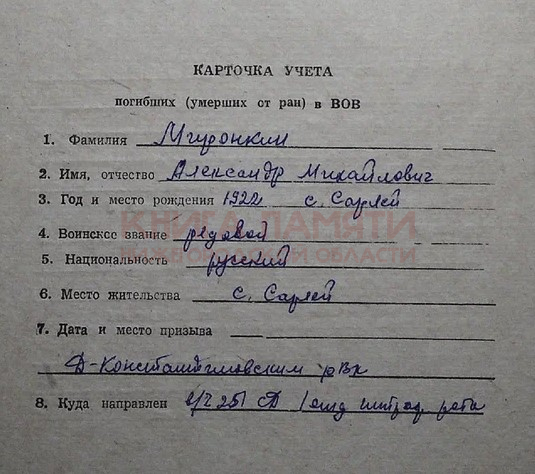 КАРТОЧКА УЧЕТА
погибших (умерших от ран) в ВОВ
1. Фамилия Миронкин
2. Имя, отчество Александр Михайлович
3. Год и место рождения 1922 с. Сарлей
КНИГА ПАМЯТИ
4. Воинское звание рядовой
ОБЛАСТИ
5. Национальность русский
6. Место жительства с. Сарлей
7. Дата и место призыва
Д-Константиновским РВК
8. Куда направлен в/ч 251 СД штраф рота